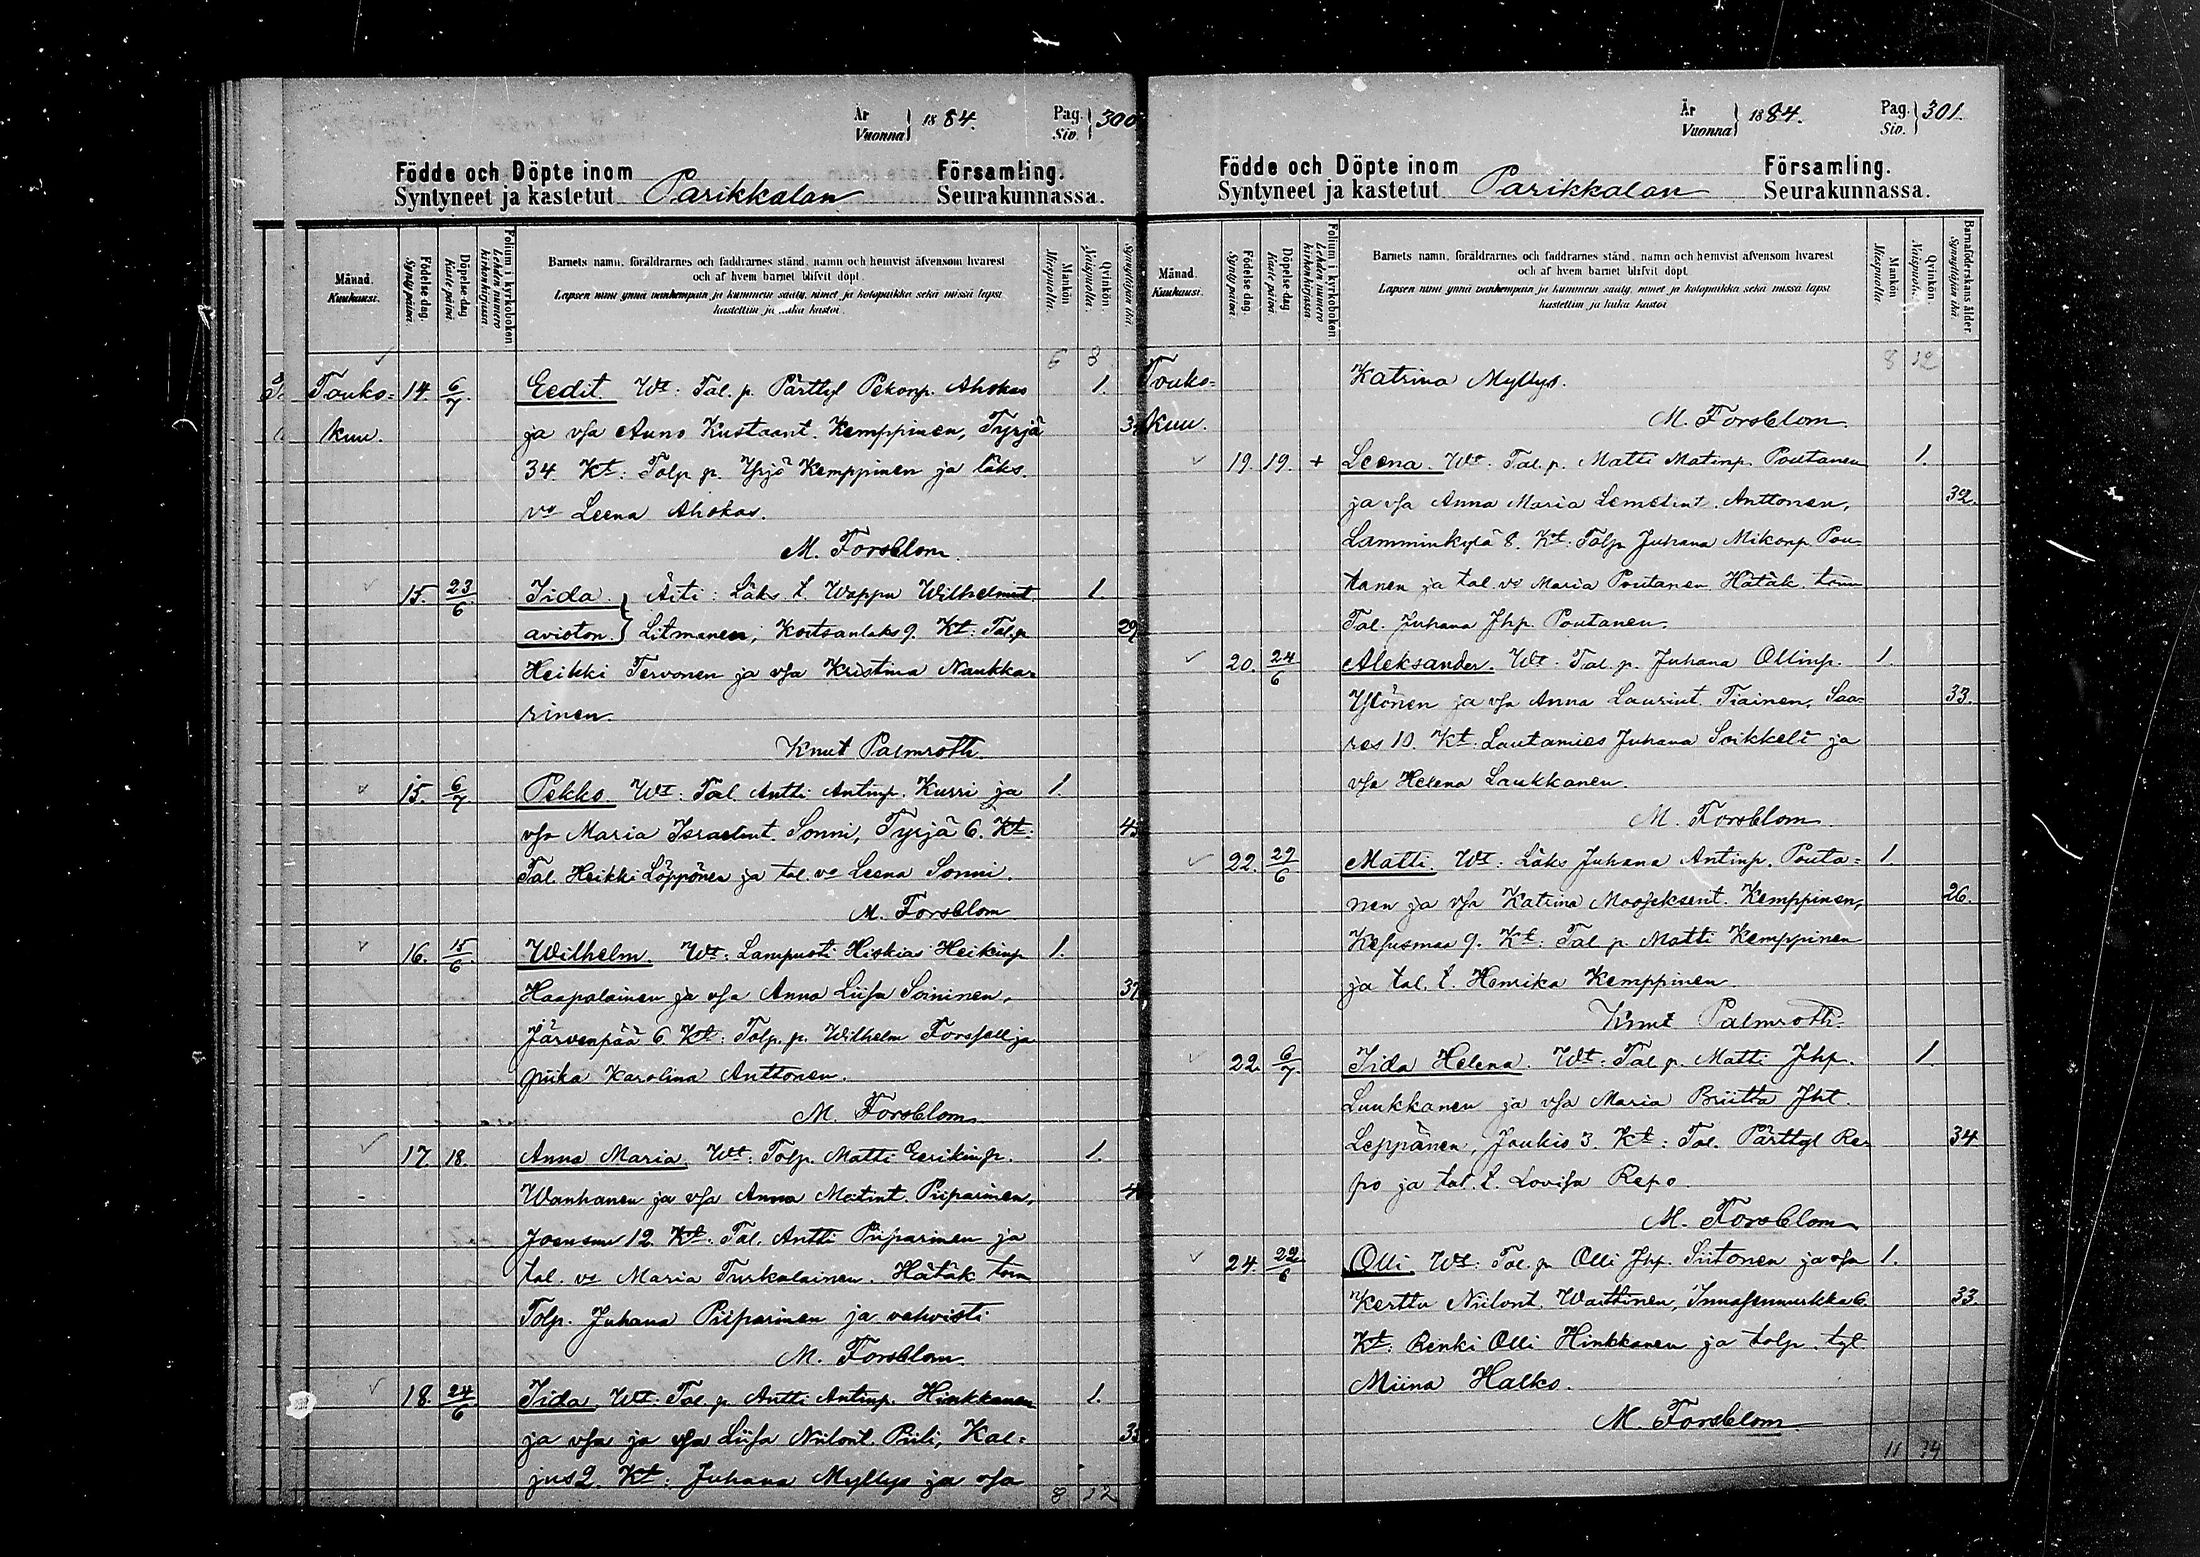 År Vuonna 1884. Pag. Siv. 300
Födde och Döpte inom Församling.
Syntyneet ja kastetut Parikkalan Seurakunnassa.
Månad. Kuukausi.
Födelse dag. Synty päivä.
Döpelse dag Kaste päivä.
Folium i kyrkoboken Lehden numero kirkonkirjassa
Barnets namn, föräldrarnes och faddrarnes stånd, namn och hemvist äfvensom hvarest
och af hvem barnet blifvit döpt.
Lapsen nimi ynnä vanhempain ja kummein sääty, nimet ja kotopaikka sekä missä lapsi
kastettiin ja kuka kastoi.
Mankön. Miespuolia.
Qvinkön. Naispuolia.
Synnyttäjän ikä.
6 8
Touko- 14. 6/7. Eedit. Wt: Tal. p. Pärttyl Pekonp. Ahokas 1.
kuu. ja vsa Auno Kustaant. Kemppinen, Tyrjä
34. Kt: Talp p. Yrjö Kemppinen ja läks.
vo Leena Ahokas.
M. Forsblom.
15. 23/6. Iida. } Äiti: Läks. t. Wappu Wilhelmint. 1.
avioton. } Litmanen, Koitsanlaks 9. Kt: Tal. p. 29
Heikki Tervonen ja vsa Kristina Naukka-
rinen.
Knut Palmroth.
15. 6/7 Pekko. Wt: Tal. Antti Antinp. Kurri ja 1.
vsa Maria Israelint. Sonni, Tyrjä 6. Kt:
Tal. Heikki Löppönen ja tal. vo Leena Sonni.
M. Forsblom
16. 15/6. Wilhelm. Wt: Lampuoti Hiskias Heikinp 1.
Haapalainen ja vsa Anna Liisa Soininen,
Järvenpää 6. Kt: Talp. p. Wilhelm Forssell ja
piika Karolina Anttonen.
M. Forsblom
17. 18. Anna Maria. Wt: Talp. Matti Eerikinp. 1.
Wanhanen ja vsa Anna Matint. Piiparinen,
Joensuu 12. Kt. Tal. Antti Piiparinen ja
tal. vo Maria Turkulainen. Hätäk. toim
Talp. Juhana Piiparinen ja vahvisti
M. Forsblom
18. 24/6 Iida Wt: Tal. p. Antti Antinp. Hinkkanen 1.
ja vsa ja vsa Liisa Niilont. Piili, Kal-
jus 2. Kt: Juhana Myllys ja vsa
8 12
År Vuonna 1884. Pag. Siv. 301.
Födde och Döpte inom Församling.
Syntyneet ja kastetut Parikkalan Seurakunnassa.
Månad. Kuukausi.
Födelse dag. Synty päivä.
Döpelse dag Kaste päivä.
Folium i kyrkoboken Lehden numero kirkonkirjassa
Barnets namn, föräldrarnes och faddrarnes stånd, namn och hemvist äfvensom hvarest
och af hvem barnet blifvit döpt.
Lapsen nimi ynnä vanhempain ja kummein sääty, nimet ja kotopaikka sekä missä lapsi
kastettiin ja kuka kastoi
Mankön Miespuolia
Qvinkön. Naispuoli.
Barnaföderskans ålder Synnyttäjän ikä.
8 12
Touko- Katrina Myllys.
kuu. M. Forsblom
19. 19. + Leena. Wt. Tal. p. Matti Matinp. Poutanen 1.
ja vsa Anna Maria Lemetint. Anttonen, 32.
Lamminkylä 8. Kt: Talp. Juhana Mikonp. Pou-
tanen ja tal. vo Maria Poutanen Hätäk. toim
Tal. Juhana Jhp. Poutanen.
20. 24/6 Aleksander. Wt. Tal. p. Juhana Ollinp. 1.
Ylönen ja vsa Anna Laurint. Tiainen, Saa- 33.
res 10. Kt: Lautamies Juhana Soikkeli ja
vsa Helena Laukkanen.
M. Forsblom
22. 29/6 Matti. Wt: Läks Juhana Antinp. Pouta- 1.
nen ja vsa Katrina Mooseksent. Kemppinen, 26.
Kesusmaa 9. Kt: Tal p. Matti Kemppinen
ja tal. t. Henrika Kemppinen
Knut Palmroth.
22. 6/7. Iida Helena. Wt: Tal p. Matti Jhp. 1.
Luukkanen ja vsa Maria Briitta Jht.
Leppänen, Joukio 3. Kt: Tal. Pärttyl Re- 34
po ja tal. t. Lovisa Repo.
M. Forsblom
24. 22/6 Olli. Wt: Tal. p. Olli Jhp. Siitonen ja vsa 1.
Kerttu Niilont. Waittinen, Innasennurkka 6. 33.
Kt: Renki Olli Hinkkanen ja talp. tyt
Miina Halko.
M. Forsblom
11 14